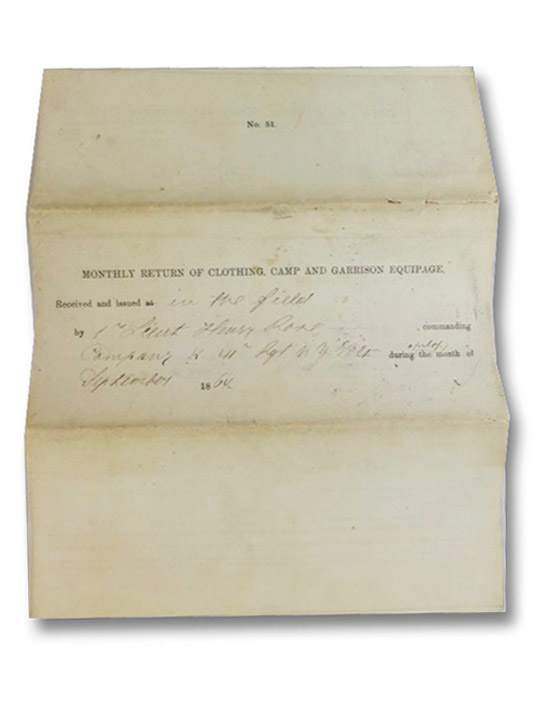 No. 52.
MONTHLY RETURN OF CLOTHING, CAMP AND GARRISON EQUIPAGE,
Received and issued at in the field
by 1st Lieut Henry commanding
Company Rgt during the month of
September 1864